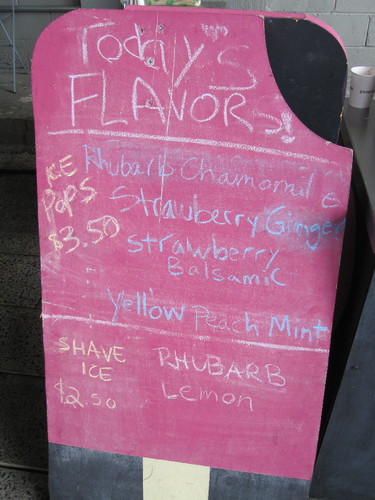 Today's
FLAVORS!
ICE
POPS
$3.50
Rhubarb Chamomile
Strawberry Ginger
Strawberry
Balsamic
Yellow Peach Mint
SHAVE
ICE
$2.50
RHUBARB
Lemon